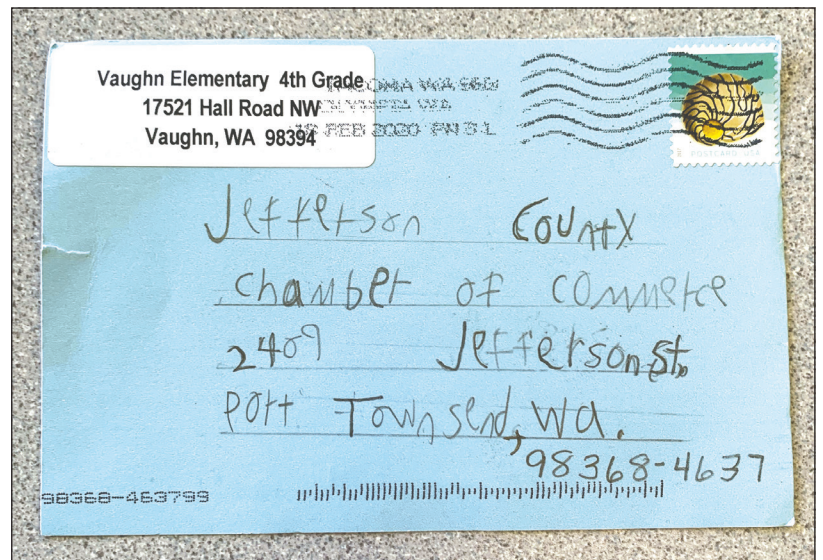 Vaughn Elementary 4th Grade
17521 Hall Road NW
Vaughn, WA 98394
TACOMA WA
FEB 2020 PM 3 L
POSTCARD USA
Jefferson County
chamber of commerce
2409 Jefferson st.
port Townsend, wa.
98368-4637
98368-463799